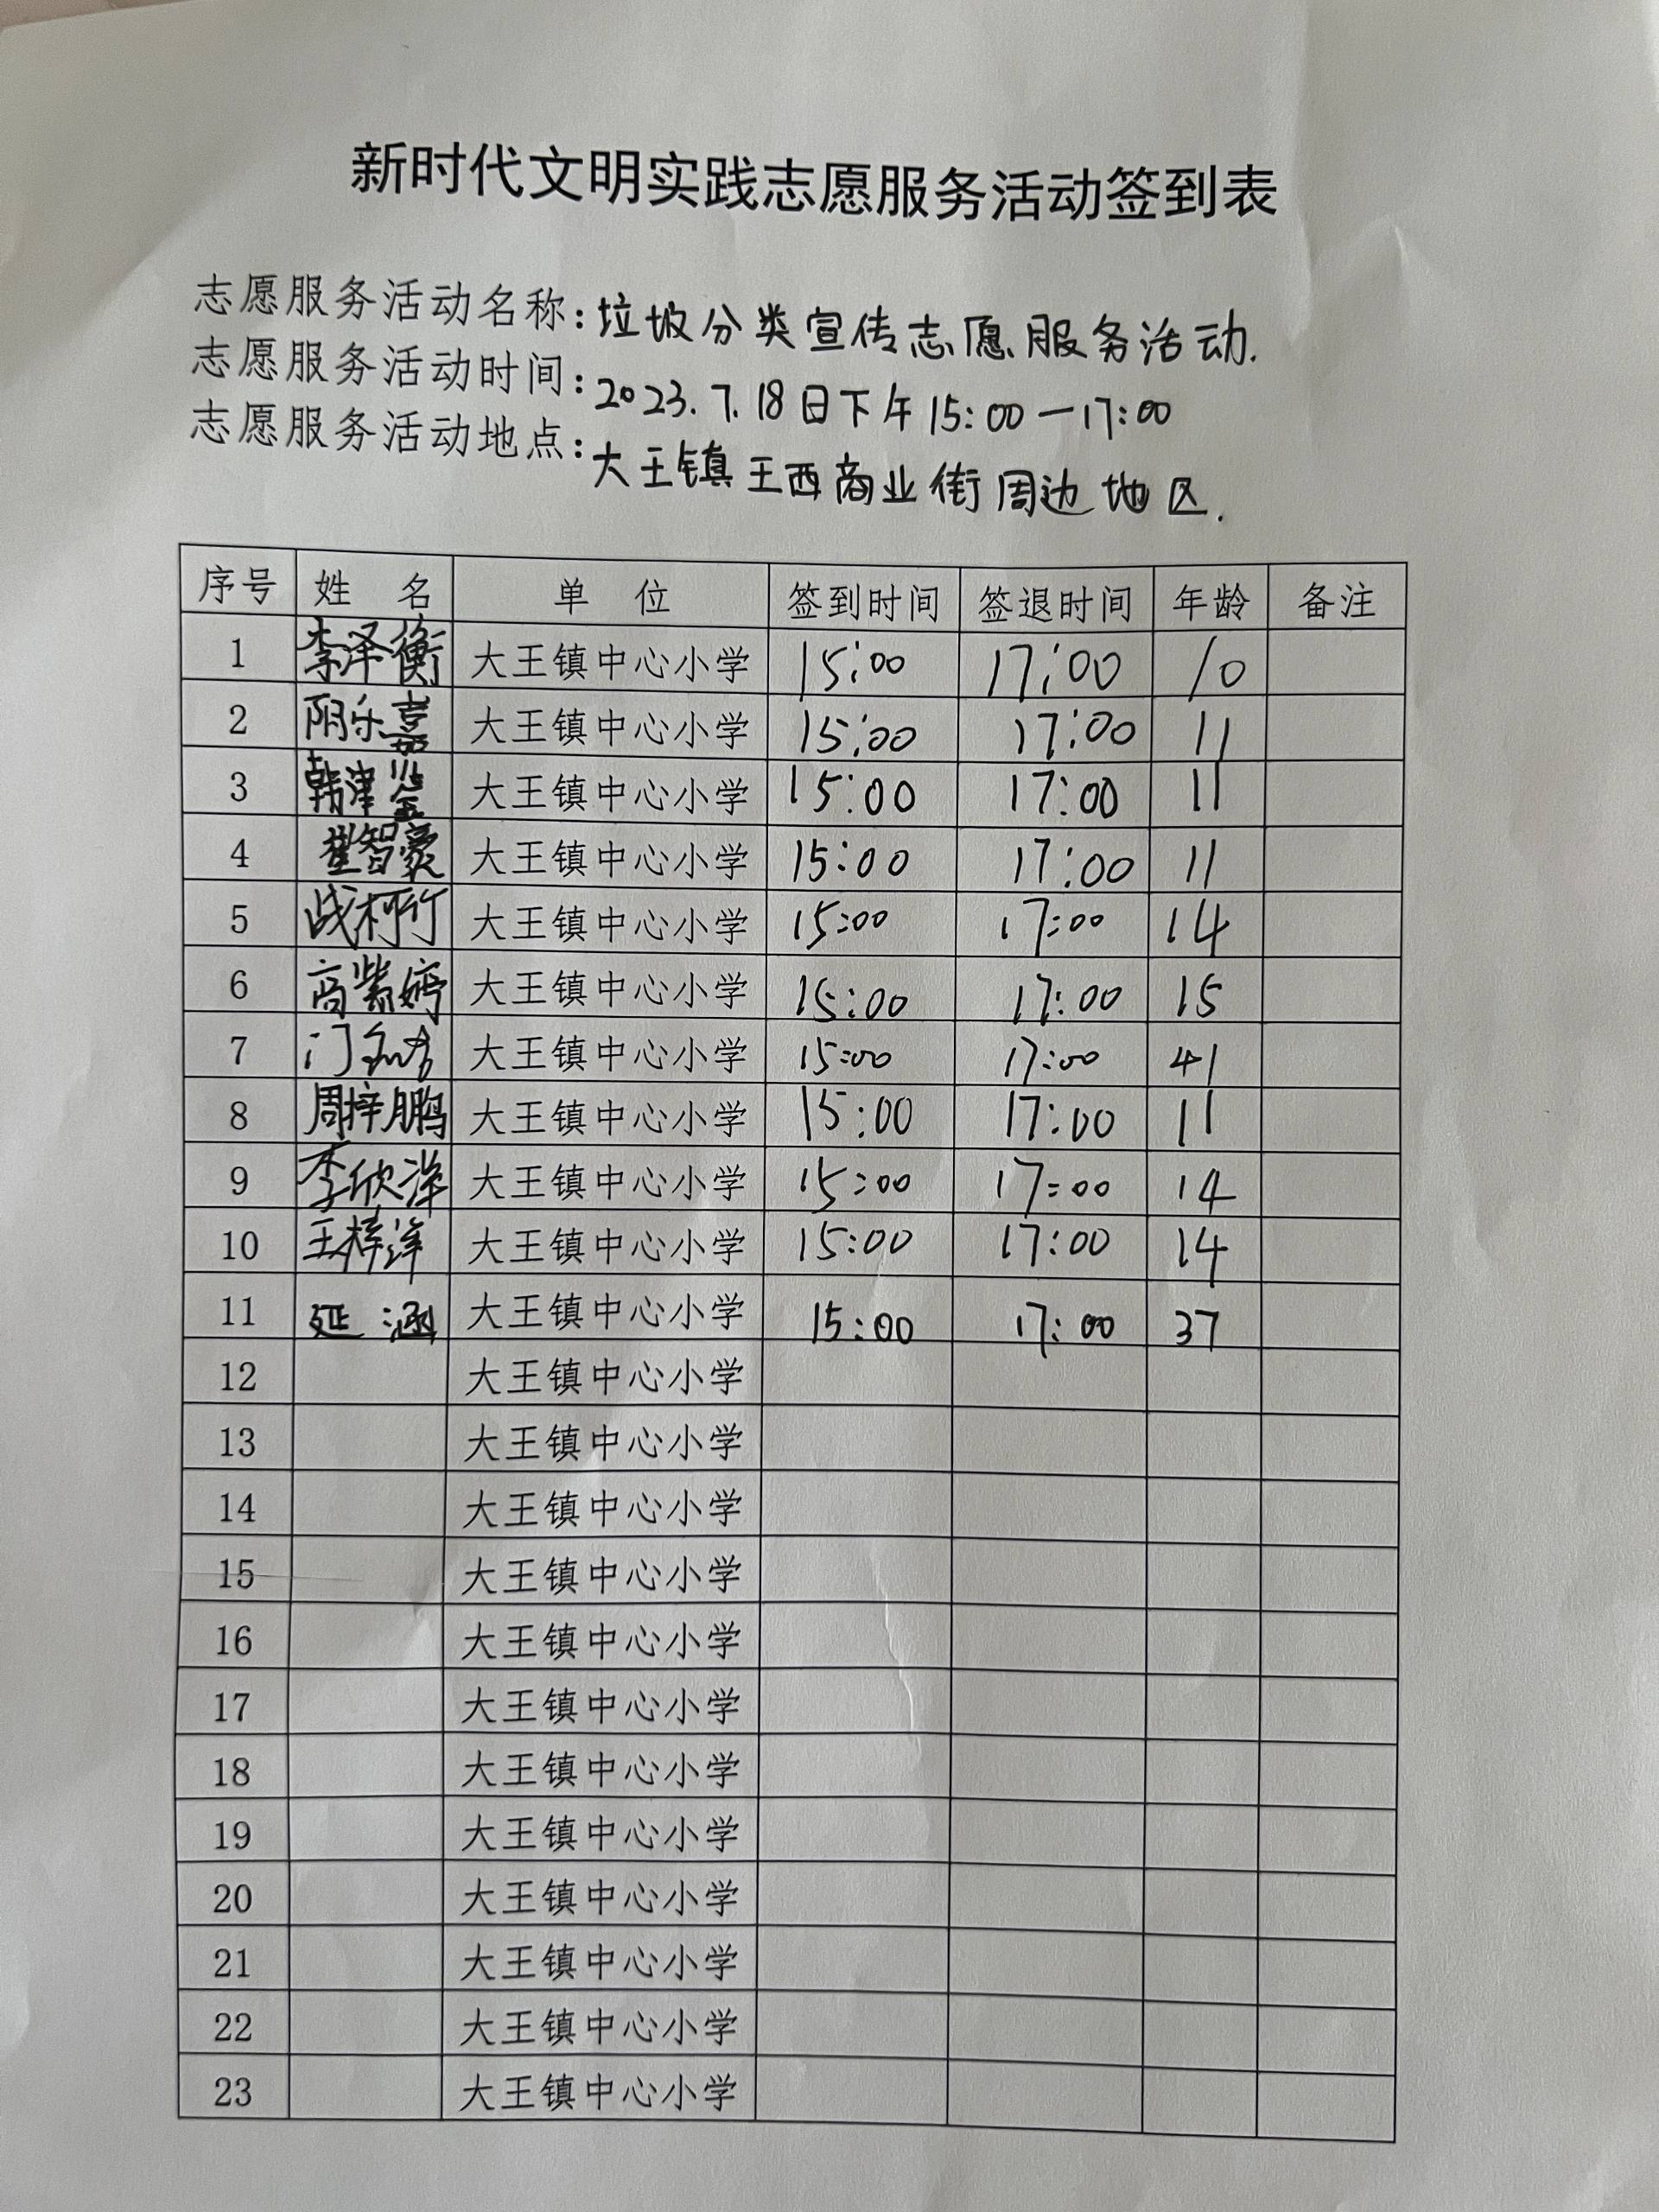 新时代文明实践志愿服务活动签到表
志愿服务活动名称:垃圾分类宣传志愿服务活动.
志愿服务活动时间:2023.7.18日下午15:00—17:00
志愿服务活动地点:大王镇王西商业街周边地区.
序号 姓 名 单 位 签到时间 签退时间 年龄 备注
1 李泽衡 大王镇中心小学 15:00 17:00 10
2 大王镇中心小学 15:00 17:00 11
3 大王镇中心小学 15:00 17:00 11
4 崔智豪 大王镇中心小学 15:00 17:00 11
5 战柯竹 大王镇中心小学 15:00 17:00 14
6 商紫婷 大王镇中心小学 15:00 17:00 15
7 大王镇中心小学 15:00 17:00 41
8 周梓鹏 大王镇中心小学 15:00 17:00 11
9 李欣洋 大王镇中心小学 15:00 17:00 14
10 王梓洋 大王镇中心小学 15:00 17:00 14
11 延涵 大王镇中心小学 15:00 17:00 37
12 大王镇中心小学
13 大王镇中心小学
14 大王镇中心小学
15 大王镇中心小学
16 大王镇中心小学
17 大王镇中心小学
18 大王镇中心小学
19 大王镇中心小学
20 大王镇中心小学
21 大王镇中心小学
22 大王镇中心小学
23 大王镇中心小学